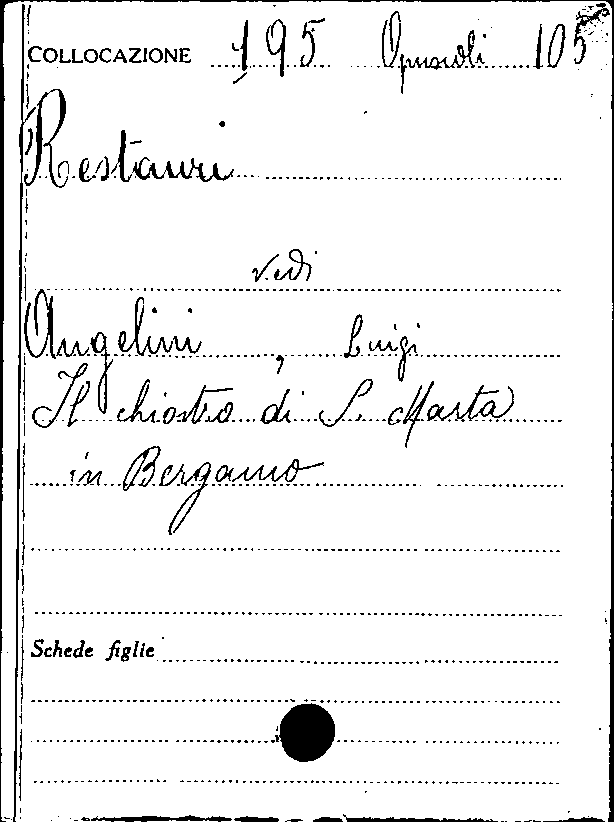 COLLOCAZIONE 195 Opuscoli 105
Restauri
vedi
Angelini, Luigi
Il chiostro di S. Marta
in Bergamo
Schede figlie